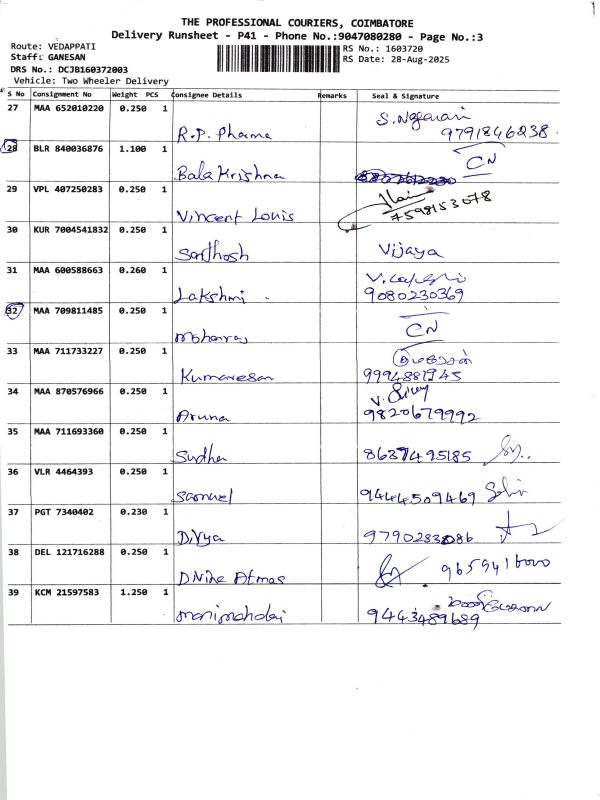 THE PROFESSIONAL COURIERS, COIMBATORE
Delivery Runsheet - P41 - Phone No.:9047080280 - Page No.:3
Route: VEDAPPATI
RS No.: 1603720
Staff: GANESAN
RS Date: 28-Aug-2025
DRS No.: DCJB160372003
Vehicle: Two Wheeler Delivery
S No Consignment No Weight PCS Consignee Details Remarks Seal & Signature
27 MAA 652010220 0.250 1
R.P. Pharma 9791846238
28 BLR 840036876 1.100 1 CN
Bala Krishna
29 VPL 407250283 0.250 1
Vincent Louis 7598153078
30 KUR 7004541832 0.250 1
Santhosh Vijaya
31 MAA 600588663 0.260 1
Lakshmi 9080230369
32 MAA 709811485 0.250 1 CN
33 MAA 711733227 0.250 1
Kumaresan 9994881945
34 MAA 870576966 0.250 1
Aruna 9820679992
35 MAA 711693360 0.250 1
Sudha 8637495185
36 VLR 4464393 0.250 1
Samuel 9444509469
37 PGT 7340402 0.230 1
Divya 9790283086
38 DEL 121716288 0.250 1
39 KCM 21597583 1.250 1
9443489689